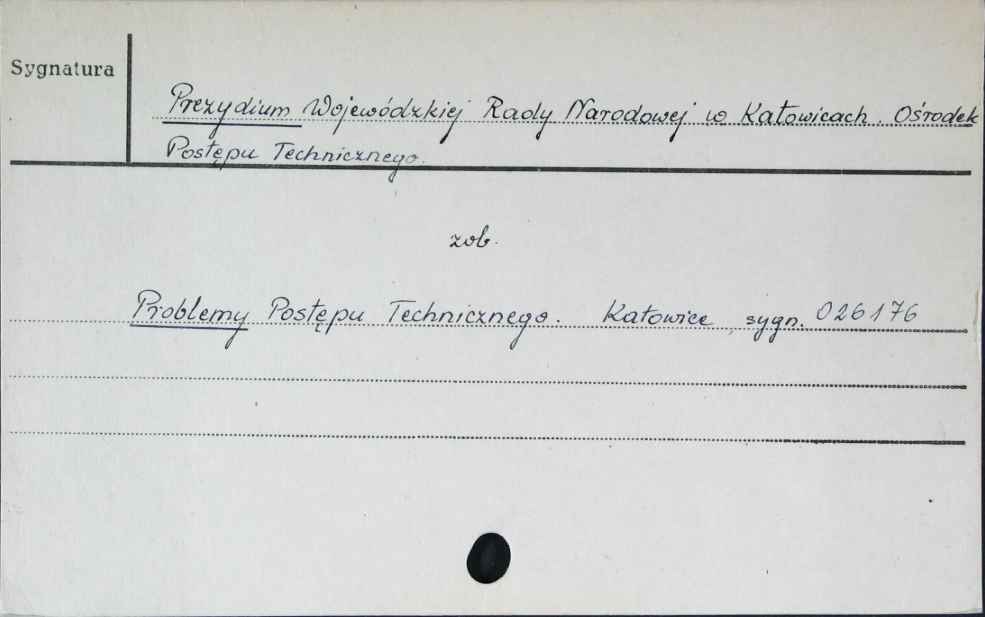 Sygnatura
Prezydium Wojewódzkiej Rady Narodowej w Katowicach. Ośrodek
Postępu Technicznego.
zob.
Problemy Postępu Technicznego. Katowice, sygn. 026176